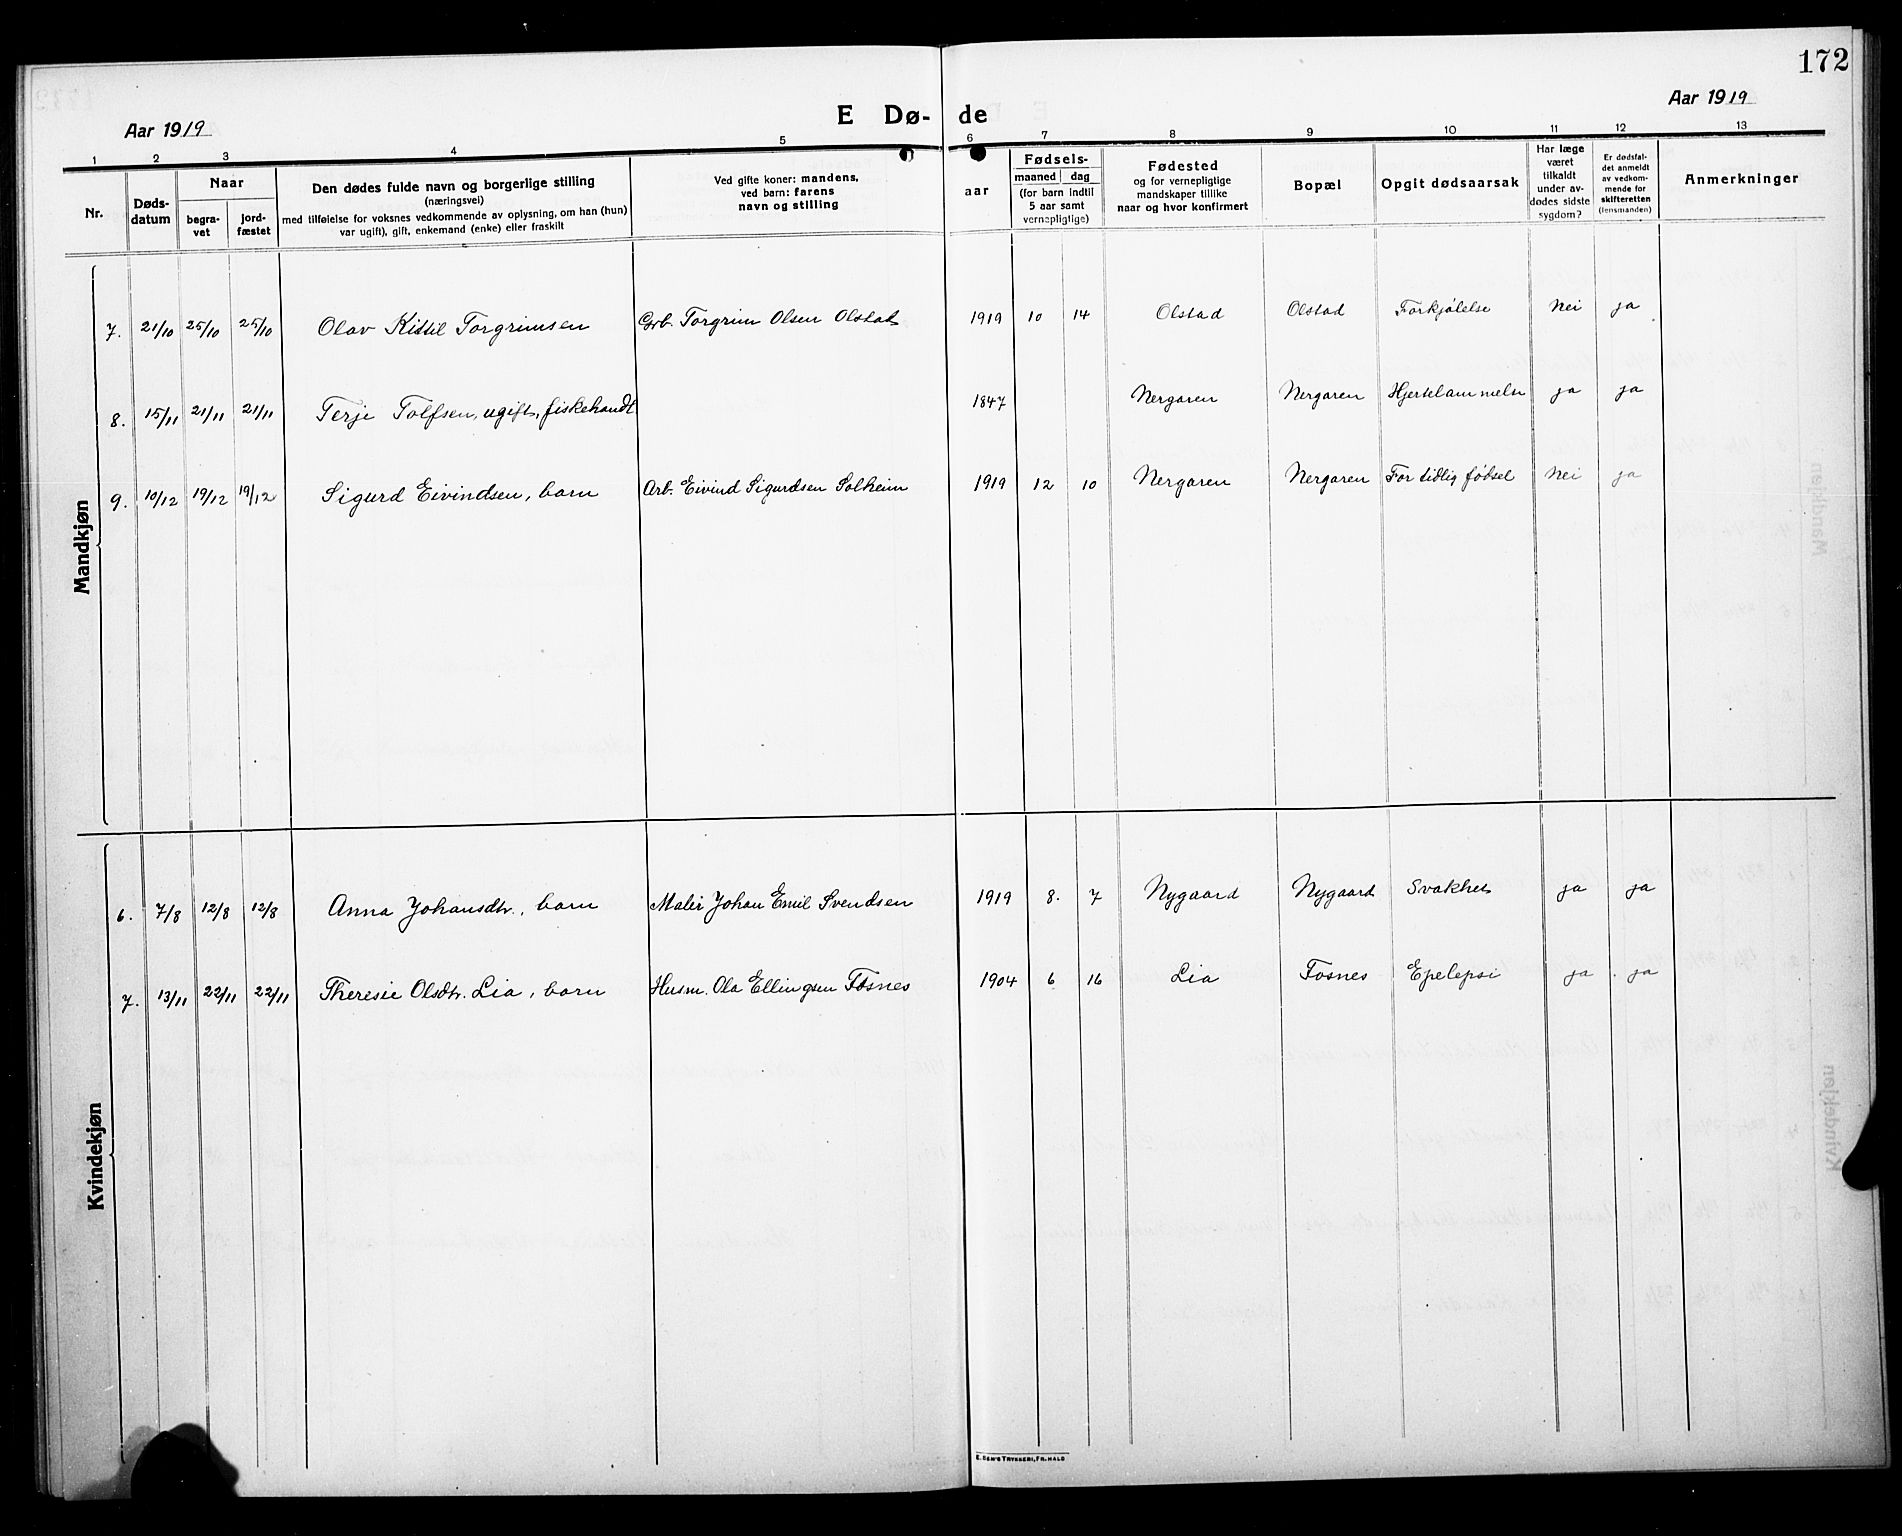 172
Aar 1919
E Dø- de
Aar 1919
1 2 3 4 5 6 7 8 9 10 11 12 13
Nr.
Døds-
datum
Naar
begra-
vet
jord-
fæstet
Den dødes fulde navn og borgerlige stilling
(næringsvei)
med tilføielse for voksnes vedkommende av oplysning, om han (hun)
var ugift), gift, enkemand (enke) eller fraskilt
Ved gifte koner: mandens,
ved barn: farens
navn og stilling
aar
Fødsels-
maaned dag
(for barn indtil
5 aar samt
vernepligtige)
Fødested
og for vernepligtige
mandskaper tillike
naar og hvor konfirmert
Bopæl
Opgit dødsaarsak
Har læge
været
tilkaldt
under av-
dødes sidste
sygdom?
Er dødsfal-
det anmeldt
av vedkom-
mende for
skifteretten
(lensmanden)
Anmerkninger
Mandkjøn
7. 21/10 25/10 25/10 Olav Kittil Torgrimsen Grb. Torgrim Olsen Olstad 1919 10 14 Olstad Olstad Forkjølelse Nei ja
8. 15/11 21/11 21/11 Terje Tolfsen, ugift, fiskehandl 1847 Nergaren Nergaren Hjertelammelse ja ja
9. 10/12 19/12 19/12 Sigurd Eivindsen, barn Arb. Eivind Sigurdsen Solheim 1919 12 10 Nergaren Nergaren For tidlig fødsel Nei ja
Kvindekjøn
6. 7/8 12/8 12/8 Anna Johansdtr., barn Maler Johan Emil Svendsen 1919 8. 7 Nygaard Nygaard Svakhet ja ja
7. 13/11 22/11 22/11 Theresie Olsdtr. Lia, barn Husm. Ola Ellingsen Fosnes 1904 6 16 Lia Fosnes Epelepsi ja ja
E. SEM'S TRYKKERI, FR.HALD